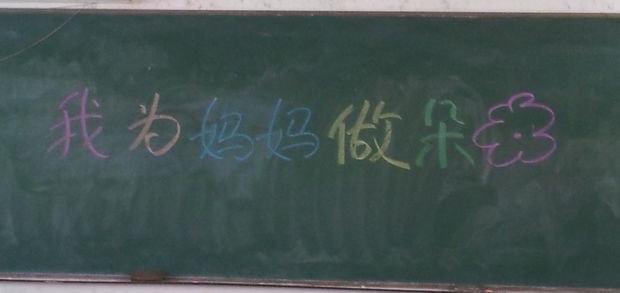 我为妈妈做朵